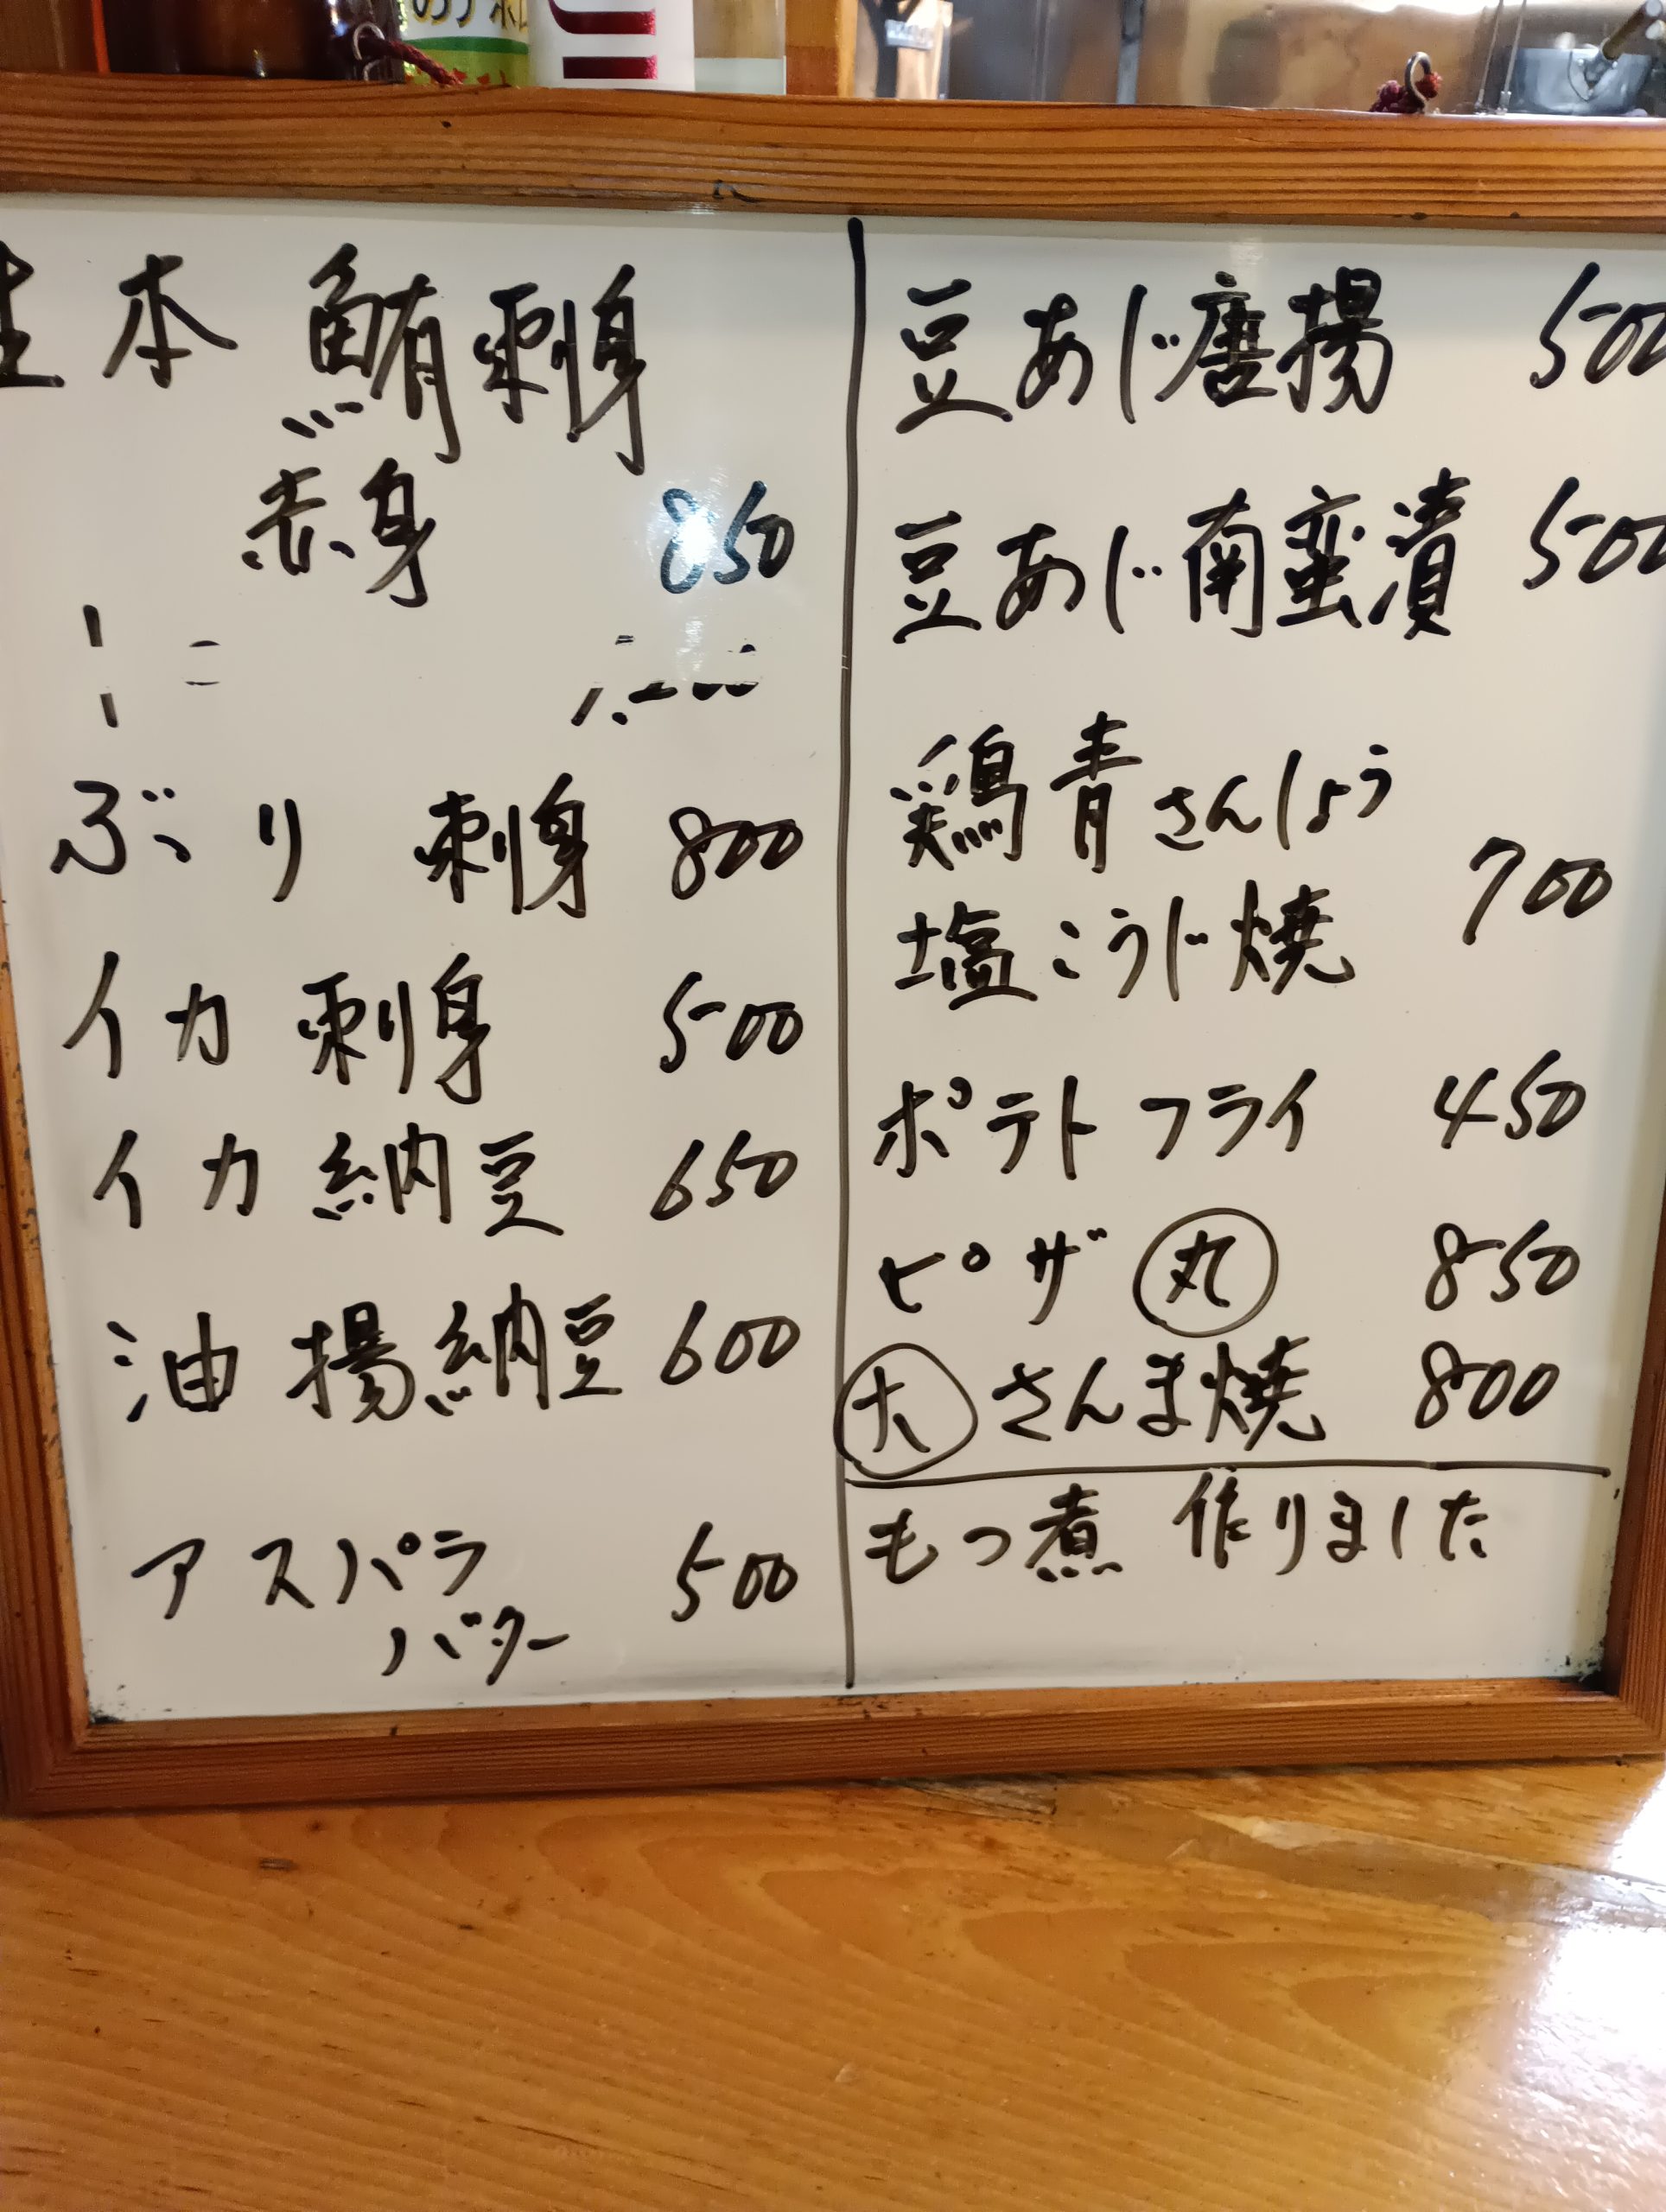 生本鮪刺身
赤身 850
ぶり 刺身 800
イカ 刺身 500
イカ納豆 650
油揚納豆 600
アスパラ 500
バター
豆あじ唐揚 500
豆あじ南蛮漬 500
鶏青さんしょう
塩こうじ焼 700
ポテトフライ 450
ピザ 丸 850
大 さんま焼 800
もつ煮 作りました